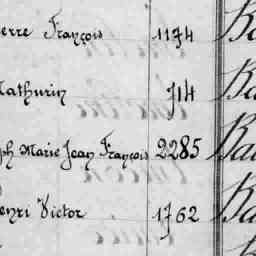 erre François 1174 Ba
Mathurin 714 Ba
ph Marie Jean François 2285 Bau
enri Victor 1762 Ba